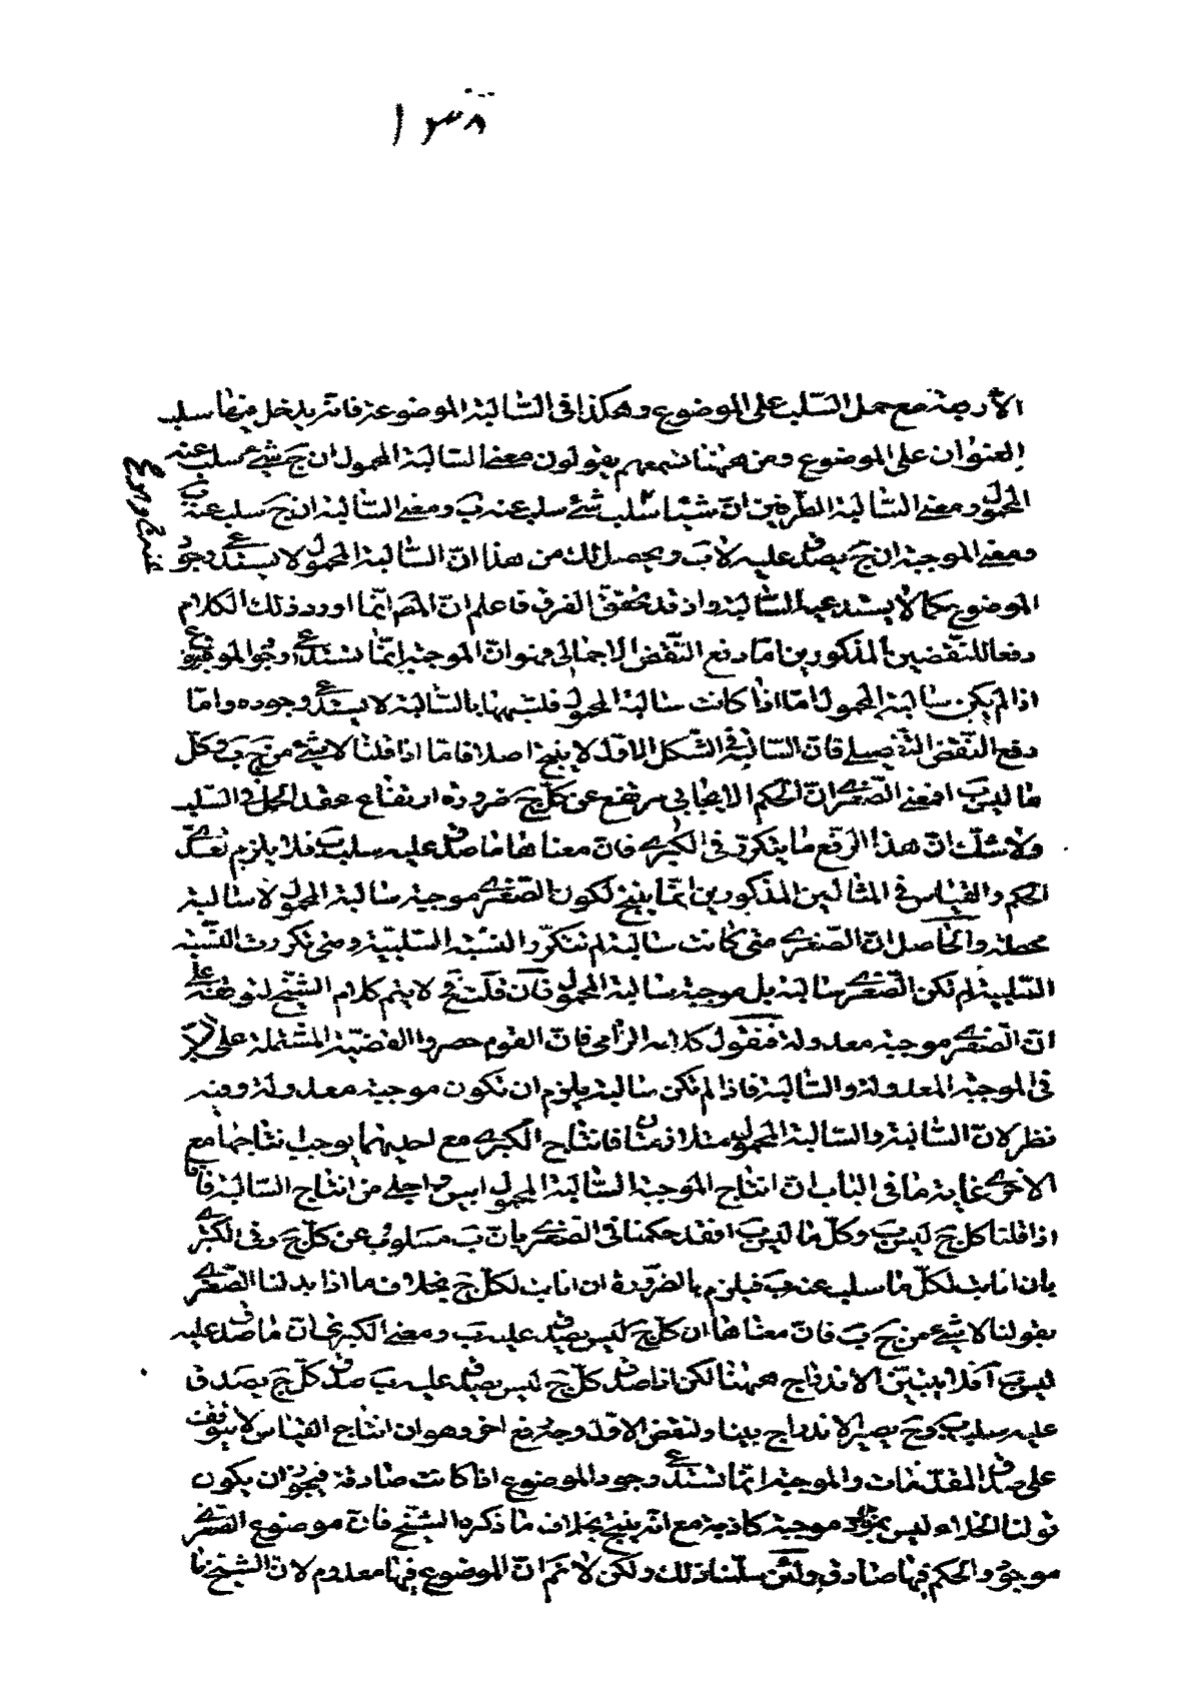 ١٣٨
الأربعة مع حمل السّلب على الموضوع وهكذا فى السّالبة الموضوع فانّه يدخل فيها سلب
العنوان على الموضوع ومن ههنا نسمعهم يقولون معنى السالبة المحمول ان ج شئ سلب عنه
المحمول ومعنى السّالبة الطّرفين انّ شيئا سلب شئ سلب عنه ب ومعنى السّالبة ان ج سلب عنه ب
ومعنى الموجبة ان ج يصدق عليه لا ب ويحصل لك من هذا انّ السّالبة المحمول لا يستدعى وجود
الموضوع كما لا يستدعيه السّالبة واذ قد تحقق الفرق فاعلم انّ المصم انّما اورد ذلك الكلام
دفعا للنّقضين المذكورين امّا دفع النّقض الاجمالى فهو انّ الموجبة انّما تستدعى وجود الموضوع
اذا لم يكن سالبة المحمول امّا اذا كانت سالبة المحمول فلشبهها بالسّالبة لا يستدعى وجوده وامّا
دفع النّقض التّفصيلى فانّ السّالبة فى الشّكل الاوّل لا ينتج اصلا فامّا اذا قلنا لا شئ من ج ب وكلّ
ما ليس ب ا فمعنى الصّغرى انّ الحكم الايجابى مرتفع عن كلّ ج ضرورة ارتفاع عقد الحمل فى السّلب
ولا شكّ انّ هذا الرّفع ما يتكرّر فى الكبرى فانّ معناها ما صدق عليه سلب ب فلا يلزم تعدّى
الحكم والقياس فى المثالين المذكورين انّما ينتج لكون الصّغرى موجبة سالبة المحمول لا سالبة
محصلة والحاصل انّ الصّغرى متى كانت سالبة لم تتكرّر النسبة السّلبيّة ومتى تكررت النّسبة
السّلبية لم تكن الصّغرى سالبة بل موجبة سالبة المحمول فان قلت فح لا يتم كلام الشّيخ لتوقفه على
انّ الصّغرى موجبة معدولة فنقول كلامه الزامى فانّ القوم حصروا القضيّة المشتملة على
فى الموجبة المعدولة والسّالبة فاذا لم تكن سالبة يلزم ان تكون موجبة معدولة وفيه
نظر لانّ السّالبة والسّالبة المحمول متلازمتان فانتاج الكبرى مع احديهما يوجب نتاجها مع
الاخرى غاية ما فى الباب انّ انتاج الموجبة السّالبة المحمول ابين واجلى من انتاج السّالبة فانّا
اذا قلنا كل ج ليس ب وكلّ ما ليس ب ا فقد حكمنا فى الصّغرى بانّ ب مسلوب عن كلّ ج وفى الكبرى
بان ا ثابت لكلّ ما سلب عنه ب فيلزم بالضّرورة ان ا ثابت لكلّ ج بخلاف ما اذا بدلنا الصّغرى
بقولنا لا شئ من ج ب فانّ معناها ان كلّ ج ليس يصدق عليه ب ومعنى الكبرى انّ ما صدق عليه
ليس ب ا فلا يتبيّن الاندراج ههنا لكن اذا صدق كلّ ج ليس يصدق عليه ب صدق كلّ ج يصدق
عليه سلب ب وح يصير الاندراج بينا ولنقض الاوّل وجه دفع اخر وهو ان انتاج القياس لا يتوقف
على صدق المقدّمات والموجبة انّما تستدعى وجود الموضوع اذا كانت صادقة فيجوز ان يكون
قولنا الخلاء ليس بموجود موجبة كاذبة مع انّه ينتج بخلاف ما ذكره الشّيخ فانّ موضوع الصّغرى
موجود والحكم فيها صادق ولئن سلّمنا ذلك ولكن لا نم انّ الموضوع فيها معدوم لانّ الشّيخ ما